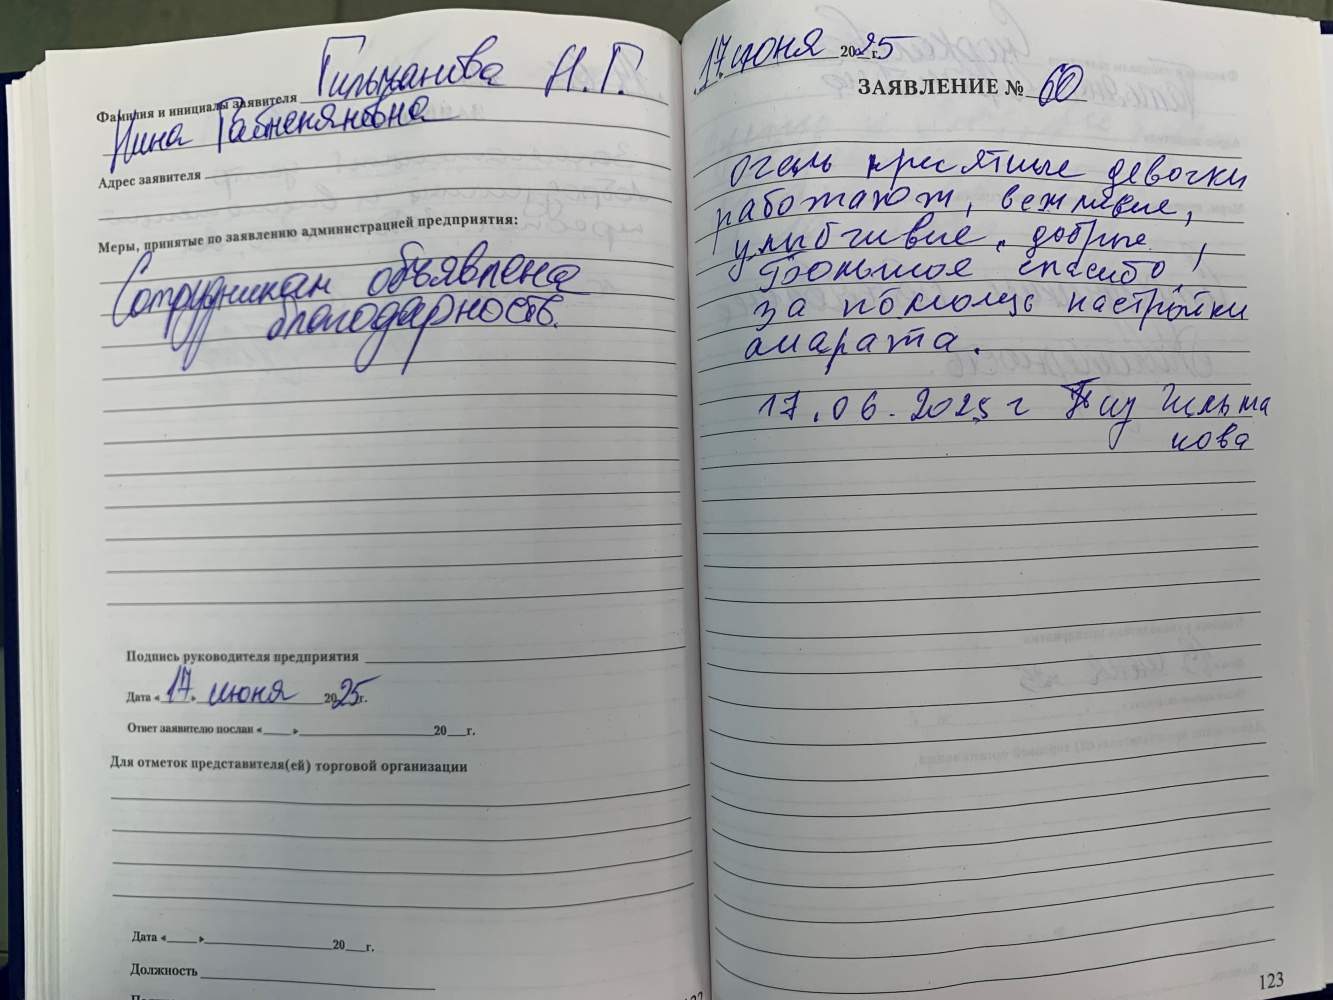 Фамилия и инициалы заявителя Гильманова Н.Г.
Нина
Адрес заявителя
Меры, принятые по заявлению администрацией предприятия:
Сотрудникам объявлена
благодарность.
Подпись руководителя предприятия
Дата «17» июня 2025г.
Ответ заявителю послан «___» 20___г.
Для отметок представителя(ей) торговой организации
Дата «___» 20___г.
Должность
17 июня 2025г.
ЗАЯВЛЕНИЕ № 60
очень приятные девочки
работают, вежливые,
улыбчивые, добрые,
Большое спасибо,
за помощь настройки
апарата.
17.06.2025 г
123